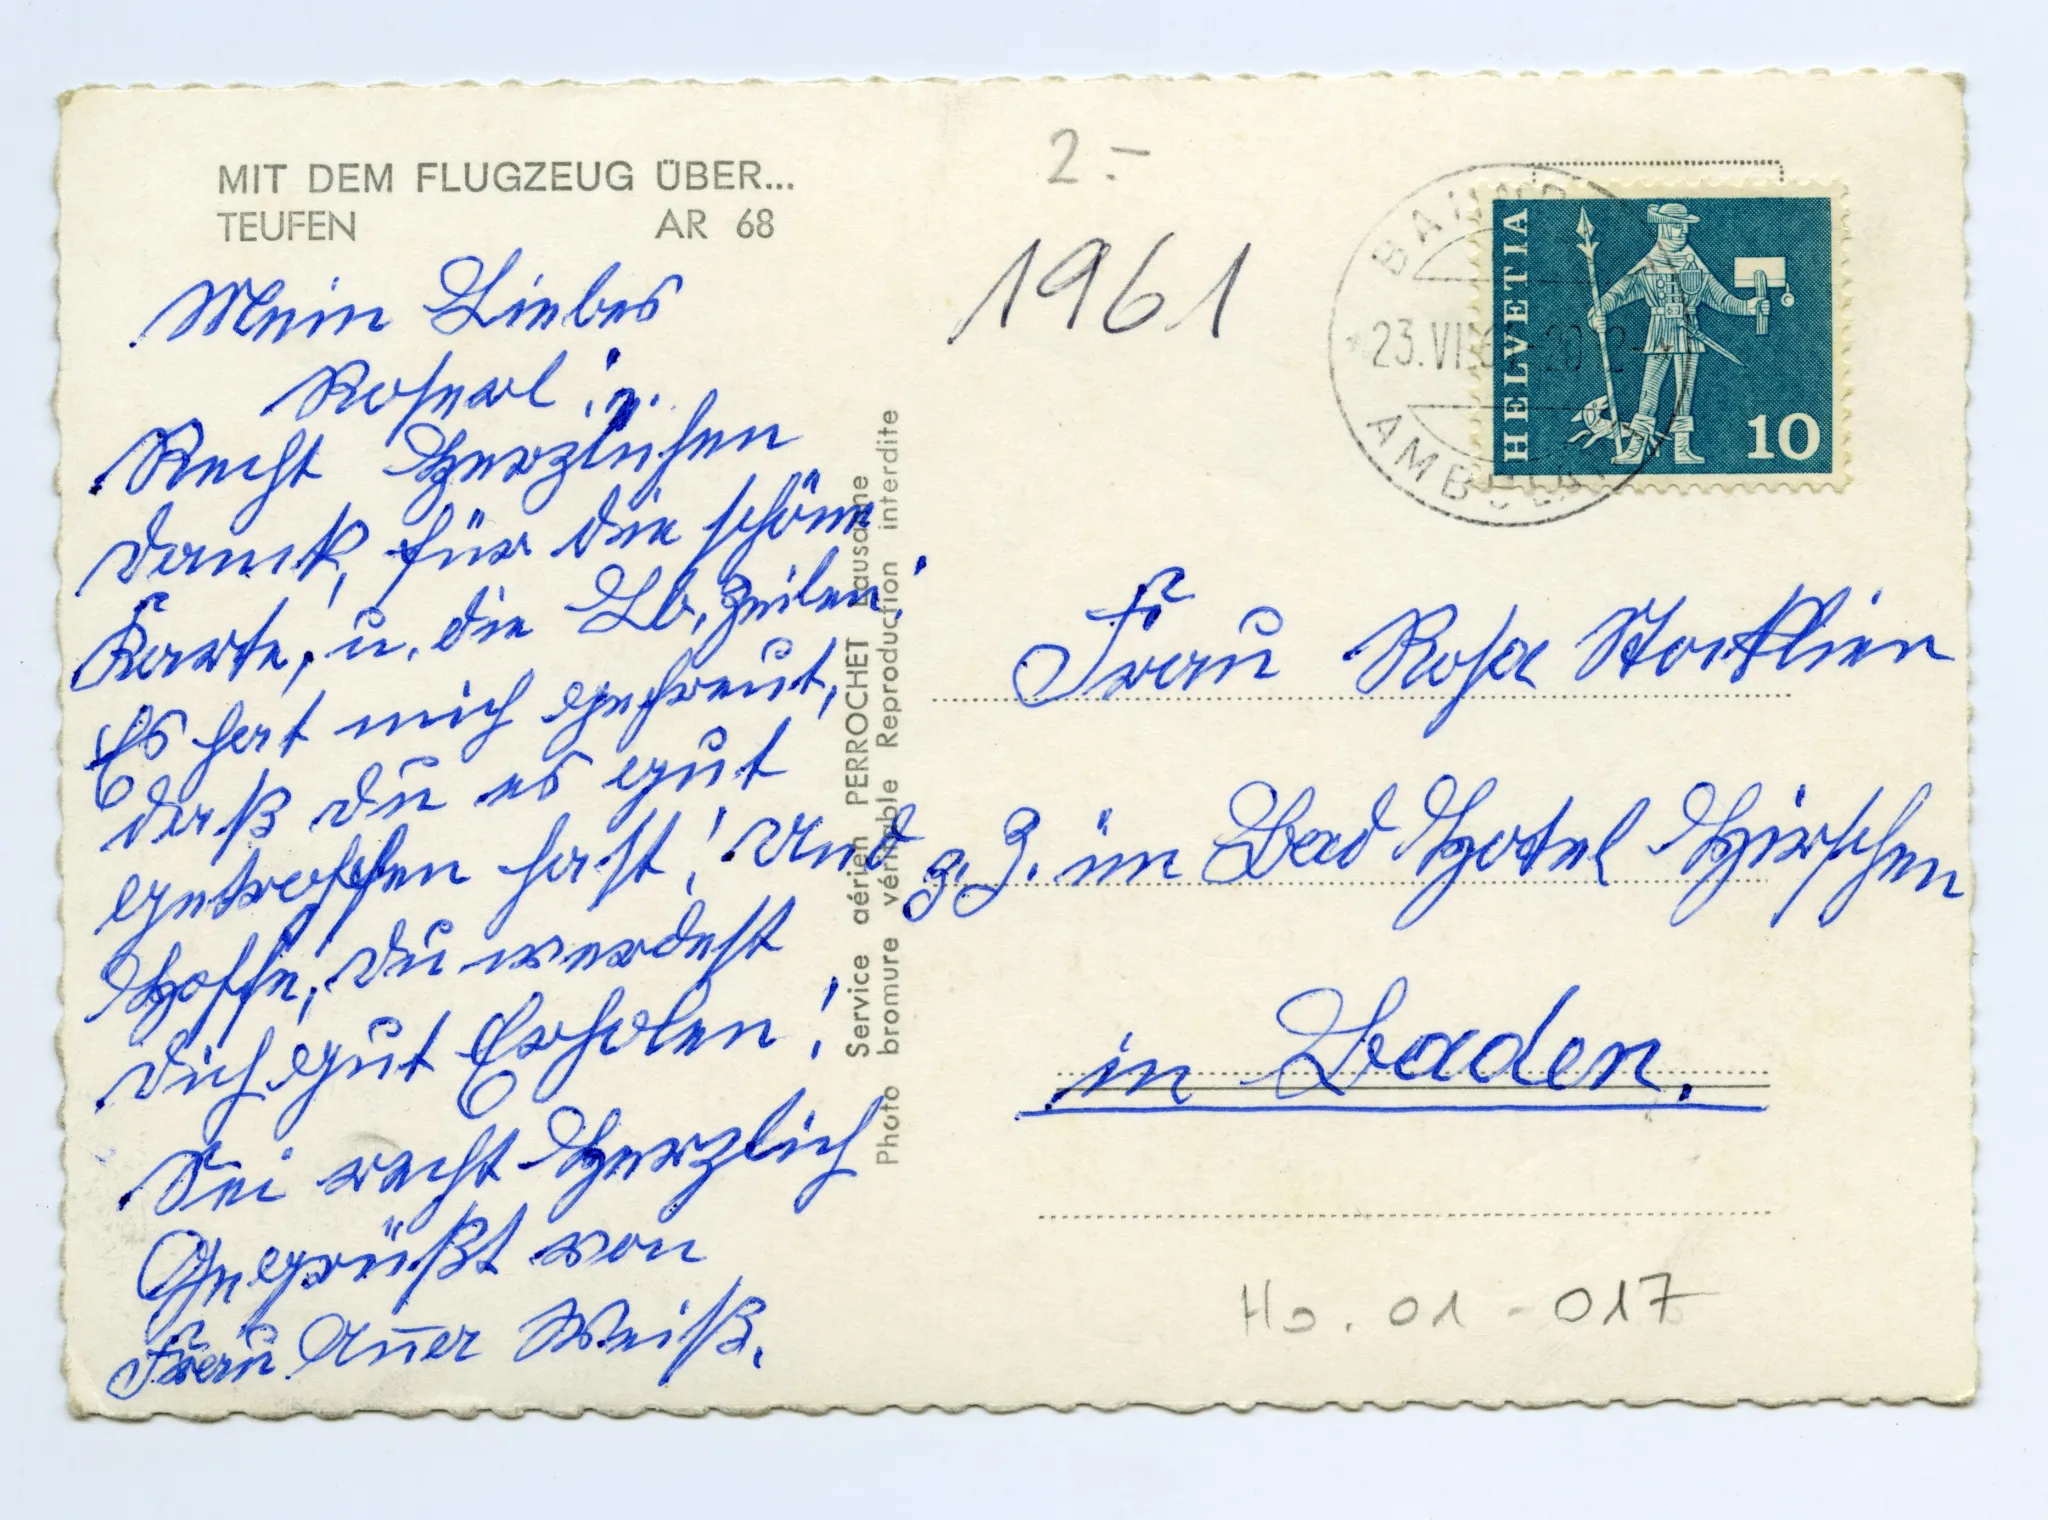 MIT DEM FLUGZEUG ÜBER...
TEUFEN AR 68
Mein Liebes
Roserl!
Recht Herzlichen
Dank, für die schöne
Karte, u. die Lb. Zeilen!
Es hat mich gefreut,
daß du es gut
getroffen hast! Und
Hoffe, du werdest
dich gut Erholen!
Sei recht Herzlich
Gegrüßt von
Frau Auer Weiß.
Service aérien PERROCHET Lausanne
Photo bromure véritable Reproduction interdite
2.-
1961
23.VII.61-20
AMBULANT
HELVETIA
10
Frau Rosa
z. Z. im Bad Hotel Hirschen
in Baden.
Ho. 01-017